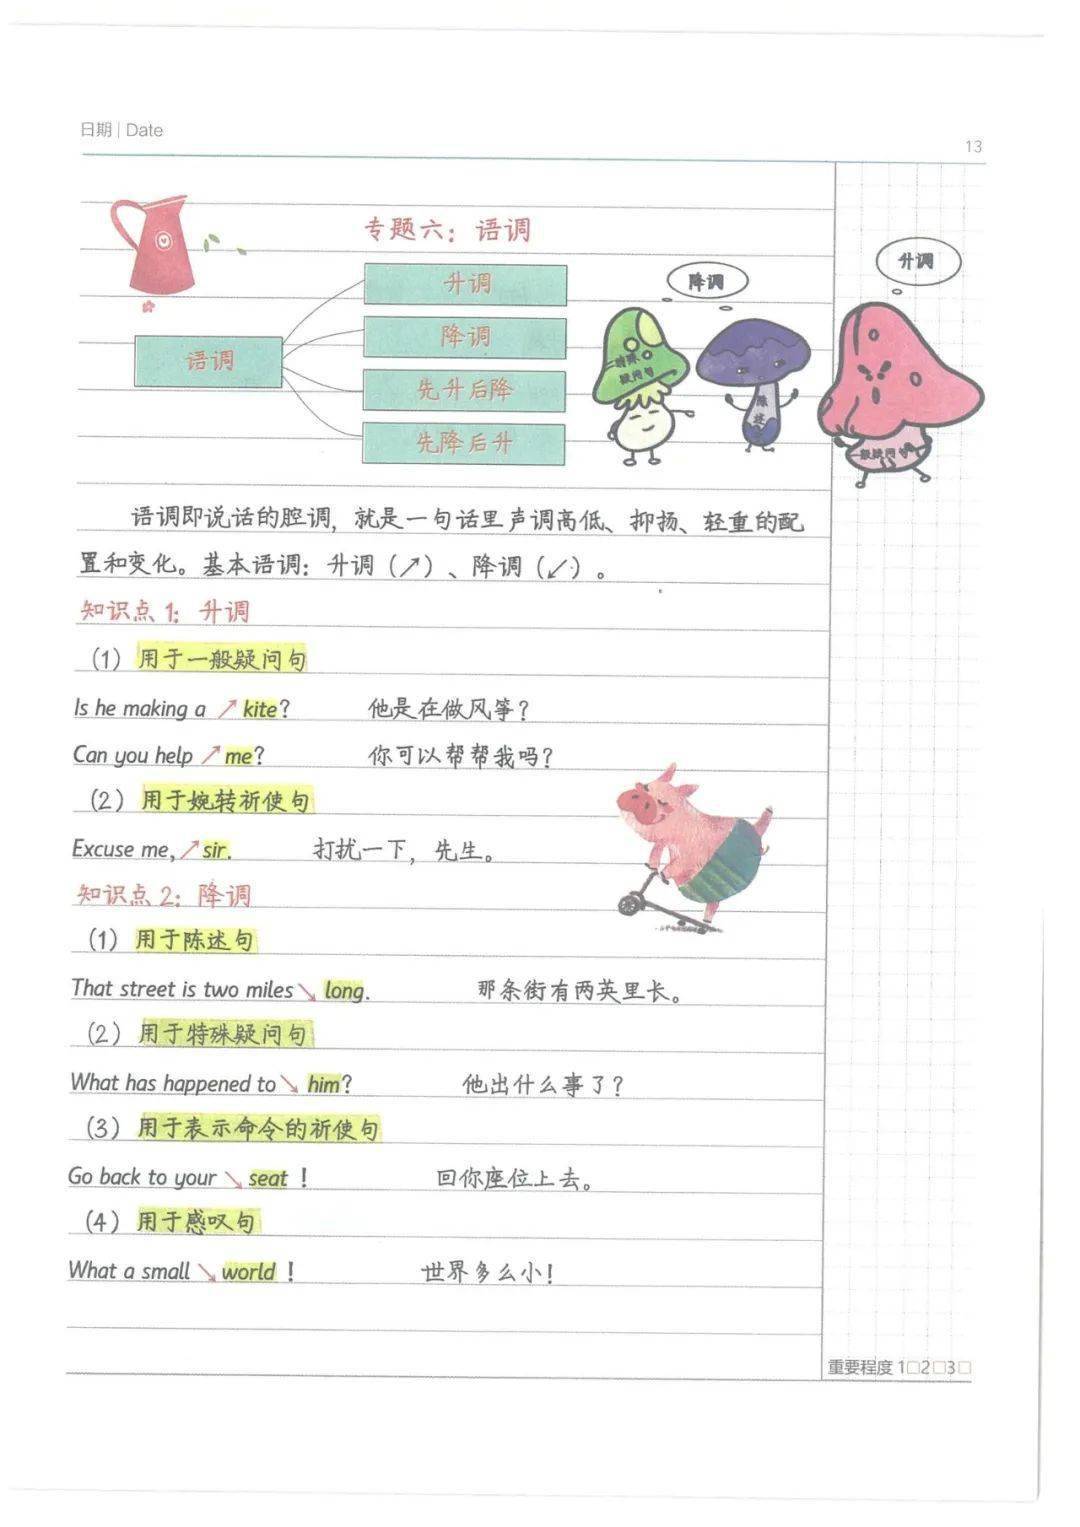 日期 | Date
13
专题六：语调
语调
升调
降调
先升后降
先降后升
降调
升调
特殊
疑问句
陈述
一般疑问句
语调即说话的腔调，就是一句话里声调高低、抑扬、轻重的配
置和变化。基本语调：升调（↗）、降调（↙）。
知识点 1：升调
（1）用于一般疑问句
Is he making a ↗ kite? 他是在做风筝？
Can you help ↗ me? 你可以帮帮我吗？
（2）用于婉转祈使句
Excuse me, ↗ sir. 打扰一下，先生。
知识点 2：降调
（1）用于陈述句
That street is two miles ↘ long. 那条街有两英里长。
（2）用于特殊疑问句
What has happened to ↘ him? 他出什么事了？
（3）用于表示命令的祈使句
Go back to your ↘ seat ! 回你座位上去。
（4）用于感叹句
What a small ↘ world ! 世界多么小！
重要程度 1□2□3□